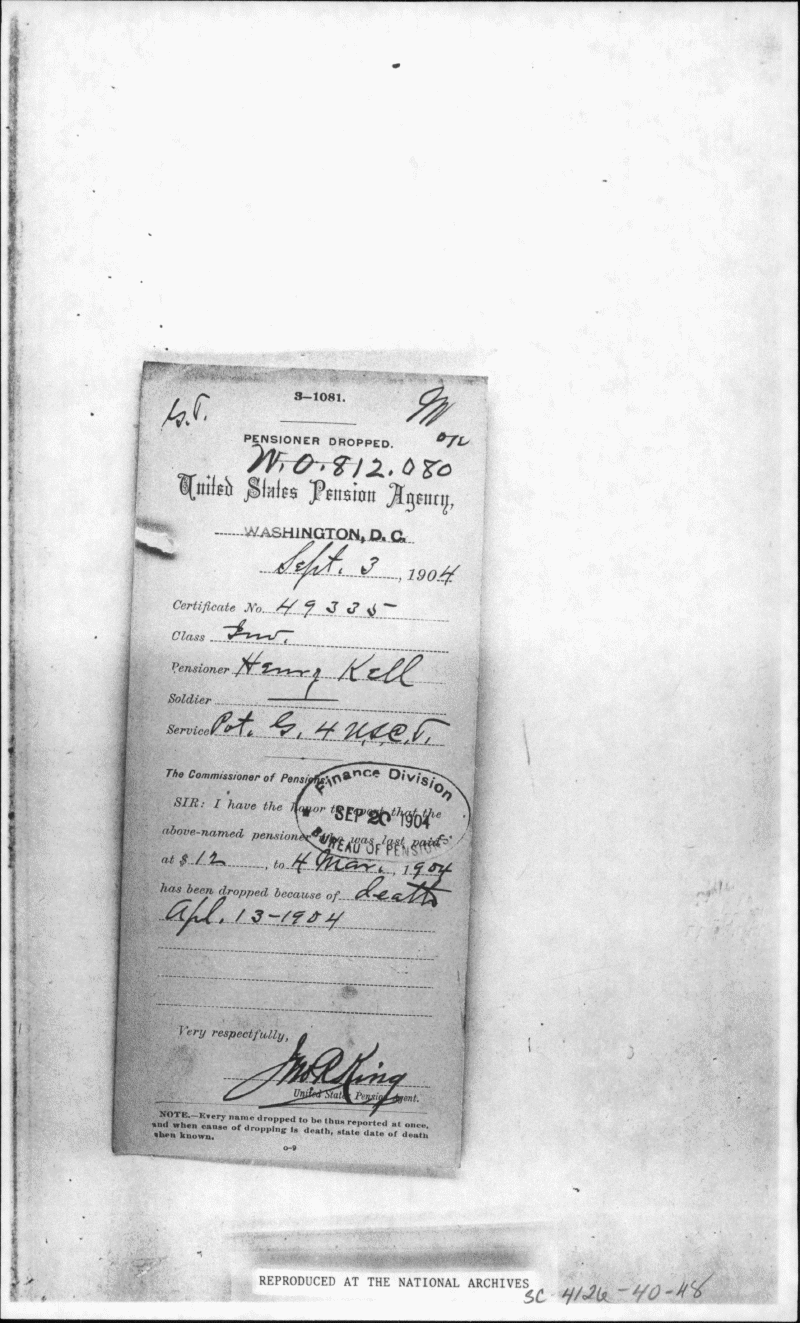 3—1081.
PENSIONER DROPPED.
W.O. 812.080
United States Pension Agency,
WASHINGTON, D. C.
Sept. 3, 1904
Certificate No. 49335
Class Inv.
Pensioner Henry Kell
Soldier
Service Pvt. G. 4 U.S.C.T.
The Commissioner of Pensions:
Finance Division
SEP 20 1904
BUREAU OF PENSIONS
SIR: I have the honor to report that the
above-named pensioner who was last paid
at $ 12, to 4 Mar., 1904
has been dropped because of death
Apl. 13-1904
Very respectfully,
Jno R King
United States Pension Agent.
NOTE.—Every name dropped to be thus reported at once,
and when cause of dropping is death, state date of death
when known.
REPRODUCED AT THE NATIONAL ARCHIVES
SC 4126-40-48